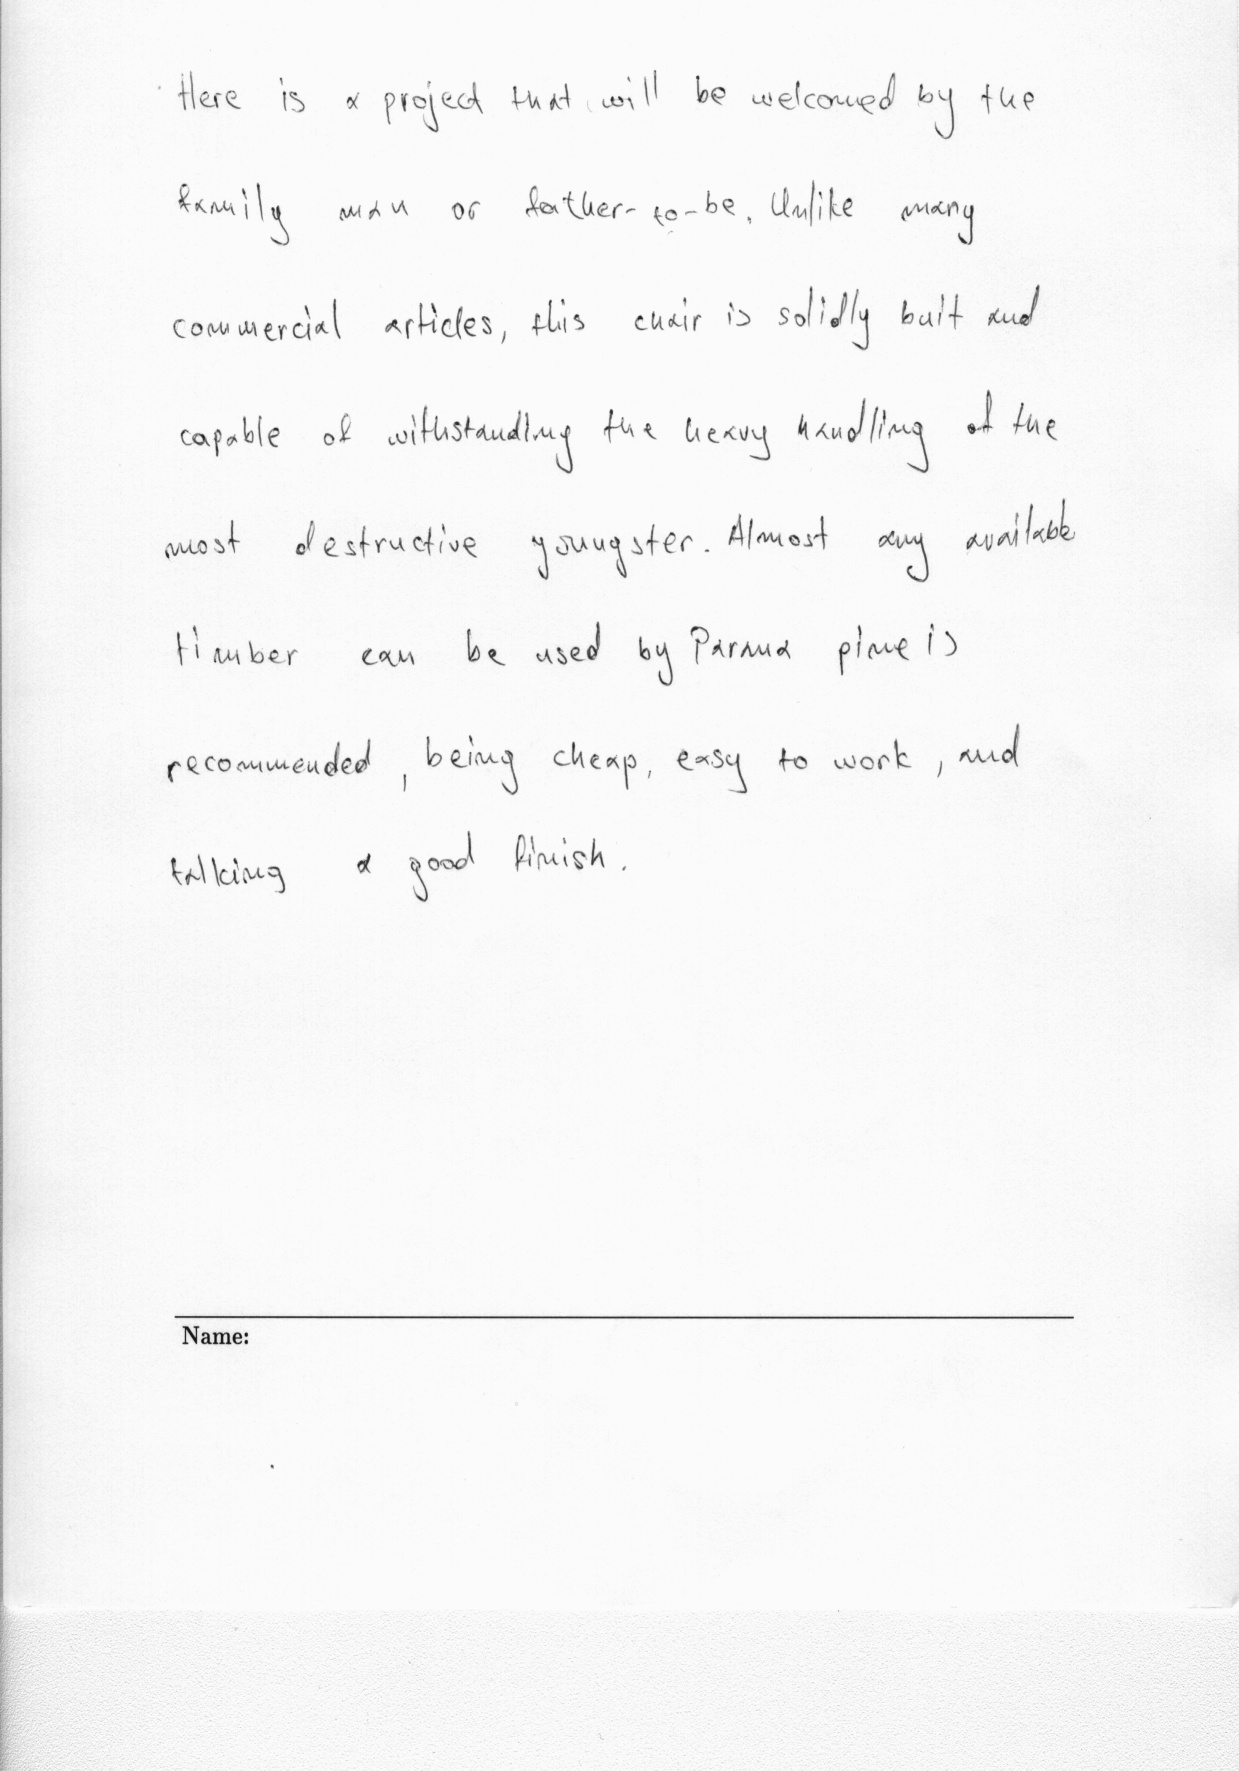 Here is a project that will be welcomed by the
family man or father-to-be. Unlike many
commercial articles, this chair is solidly buit and
capable of withstandlng the heavy handling of the
most destructive youngster. Almost any available
timber can be used by Parana pine is
recommended, being cheap, easy to work, and
talking a good finish.
Name: